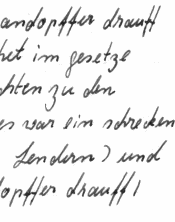 andopffer drauff
het im gesetze
chten zu den
es war ein schrecken
Lendern) und
dopffer drauff /